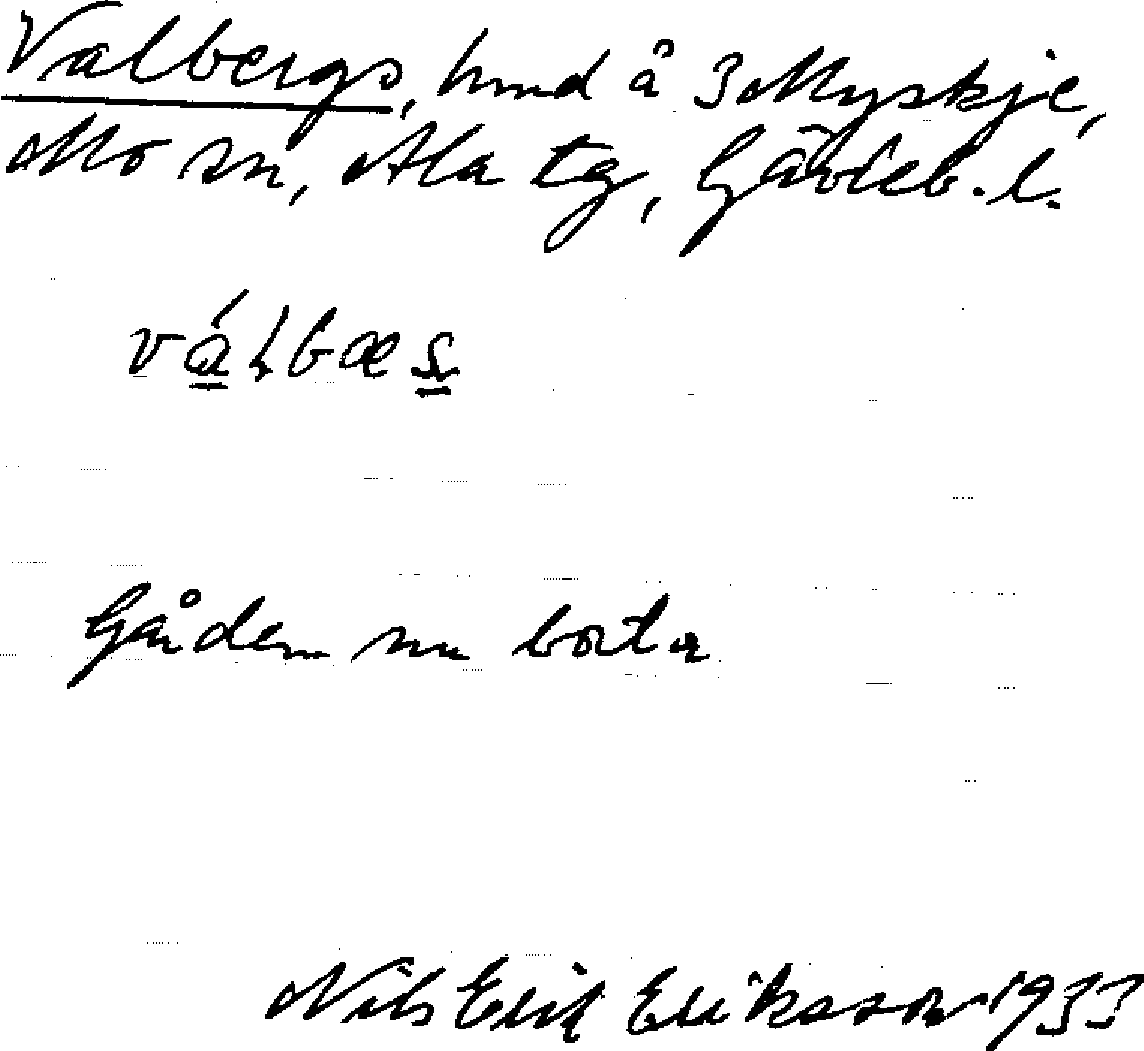 Valbergs, hmd å 3 Myskje,
Mo sn, Ala tg, Gävleb. l.
Gården nu borta
Nils Erik Eriksson 1933